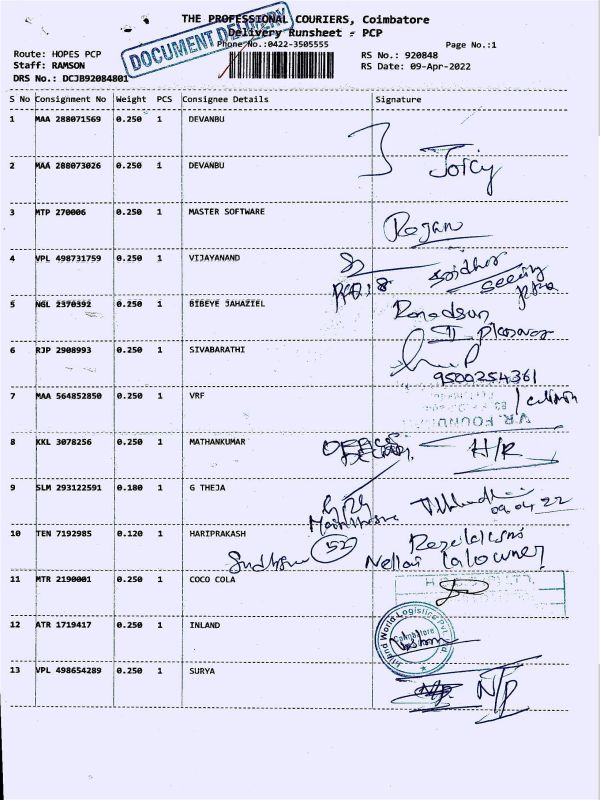 THE PROFESSIONAL COURIERS, Coimbatore
Delivery Runsheet - PCP
DOCUMENT DELIVERY
Phone No.:0422-3505555
Page No.:1
Route: HOPES PCP
RS No.: 920848
Staff: RAMSON
RS Date: 09-Apr-2022
DRS No.: DCJB92084801
S No Consignment No Weight PCS Consignee Details Signature
1 MAA 288071569 0.250 1 DEVANBU
2 MAA 288073026 0.250 1 DEVANBU
Joicy
3 MTP 270006 0.250 1 MASTER SOFTWARE
Rojan
4 VPL 498731759 0.250 1 VIJAYANAND
5 NGL 2370392 0.250 1 BIBEYE JAHAZIEL
6 RJP 2908993 0.250 1 SIVABARATHI
9500254361
7 MAA 564852850 0.250 1 VRF
V.R. FOUND
8 KKL 3078256 0.250 1 MATHANKUMAR
H/R
9 SLM 293122591 0.180 1 G THEJA
09.04.22
10 TEN 7192985 0.120 1 HARIPRAKASH
52
11 MTR 2190001 0.250 1 COCO COLA
12 ATR 1719417 0.250 1 INLAND
Inland World Logistics Pvt. Ltd
Coimbatore
13 VPL 498654289 0.250 1 SURYA
N/P